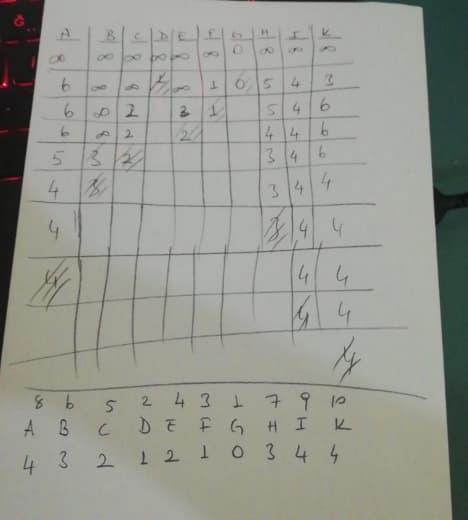 A B C D E F G H I K
∞ ∞ ∞ ∞ ∞ ∞ 0 ∞ ∞ ∞
6 ∞ ∞ 1 ∞ 1 0 5 4 3
6 ∞ 2 3 1 5 4 6
6 ∞ 2 2 4 4 6
5 3 2 3 4 6
4 3 3 4 4
4 3 4 4
4 4 4
4 4
4
8 6 5 2 4 3 1 7 9 10
A B C D E F G H I K
4 3 2 1 2 1 0 3 4 4